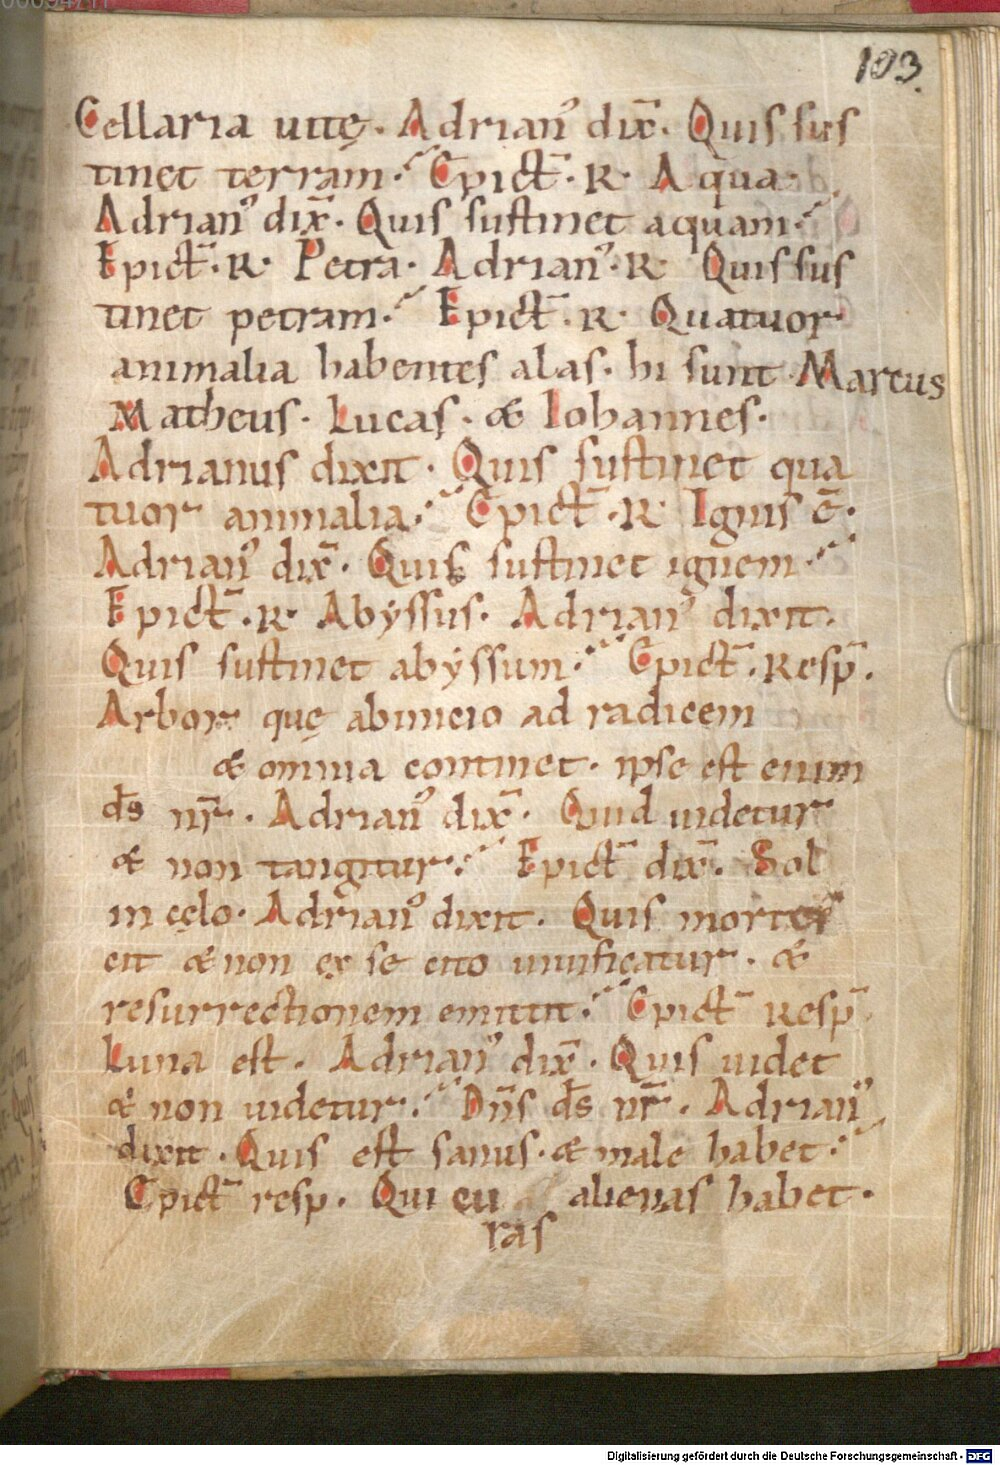 103.
Cellaria uitę. Adrian᾽ dix̄. Quis sus
tinet terram. Epict̄. R. Aqua.
Adrian᾽ dix̄. Quis sustinet aquam.
Epict̄. R. Petra. Adrian᾽. R. Quis sus
tinet petram. Epict̄. R. Quatuor
animalia habentes alas. hi sunt. Marcus
Matheus. Lucas. & Iohannes.
Adrianus dixit. Quis sustinet qua
tuor animalia. Epict̄. R. Ignis ē.
Adrian᾽ dix̄. Quis sustinet ignem.
Epict̄. R. Abyssus. Adrian᾽ dixit.
Quis sustinet abyssum. Epict̄. Resp̄.
Arbor quę ab inicio ad radicem
& omnia continet. ipse est enim
d̄s nr̄. Adrian᾽ dix̄. Quid uidetur
& non tangitur. Epict̄ dix̄. Sol
in cęlo. Adrian᾽ dixit. Quis mortes
cit & non ex se cito uiuificatur. &
resurrectionem emittit. Epict̄ Resp̄
Luna est. Adrian᾽ dix̄. Quis uidet
& non uidetur. Dn̄s d̄s nr̄. Adrian᾽
dixit. Quis est sanus. & male habet.
Epict̄ resp. Qui cu alienas habet.
ras
Digitalisierung gefördert durch die Deutsche Forschungsgemeinschaft - DFG